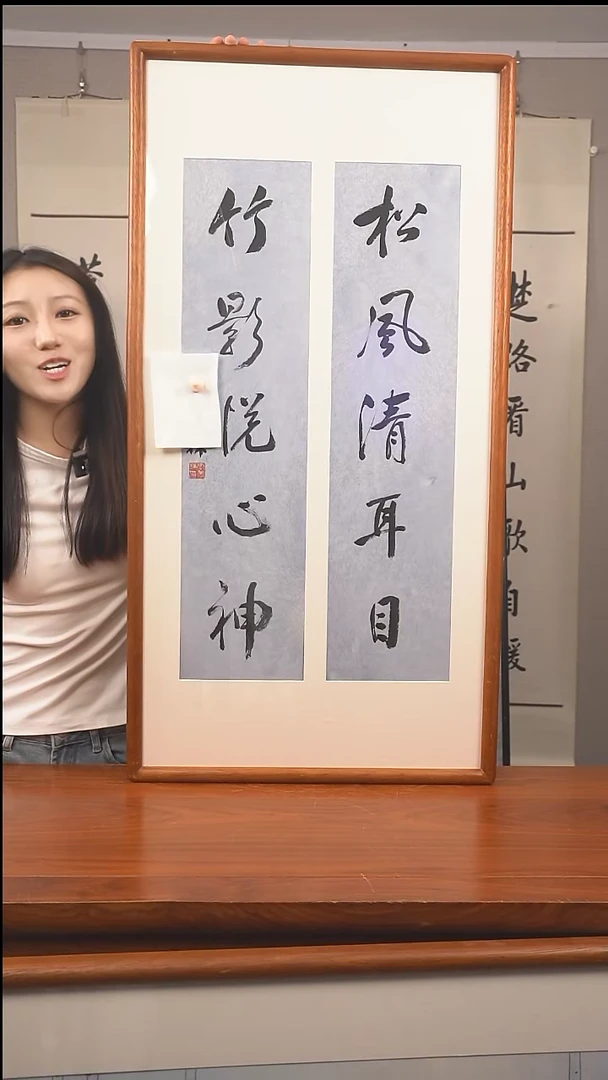 松風清耳目
竹影悦心神
楚路看山歌自緩